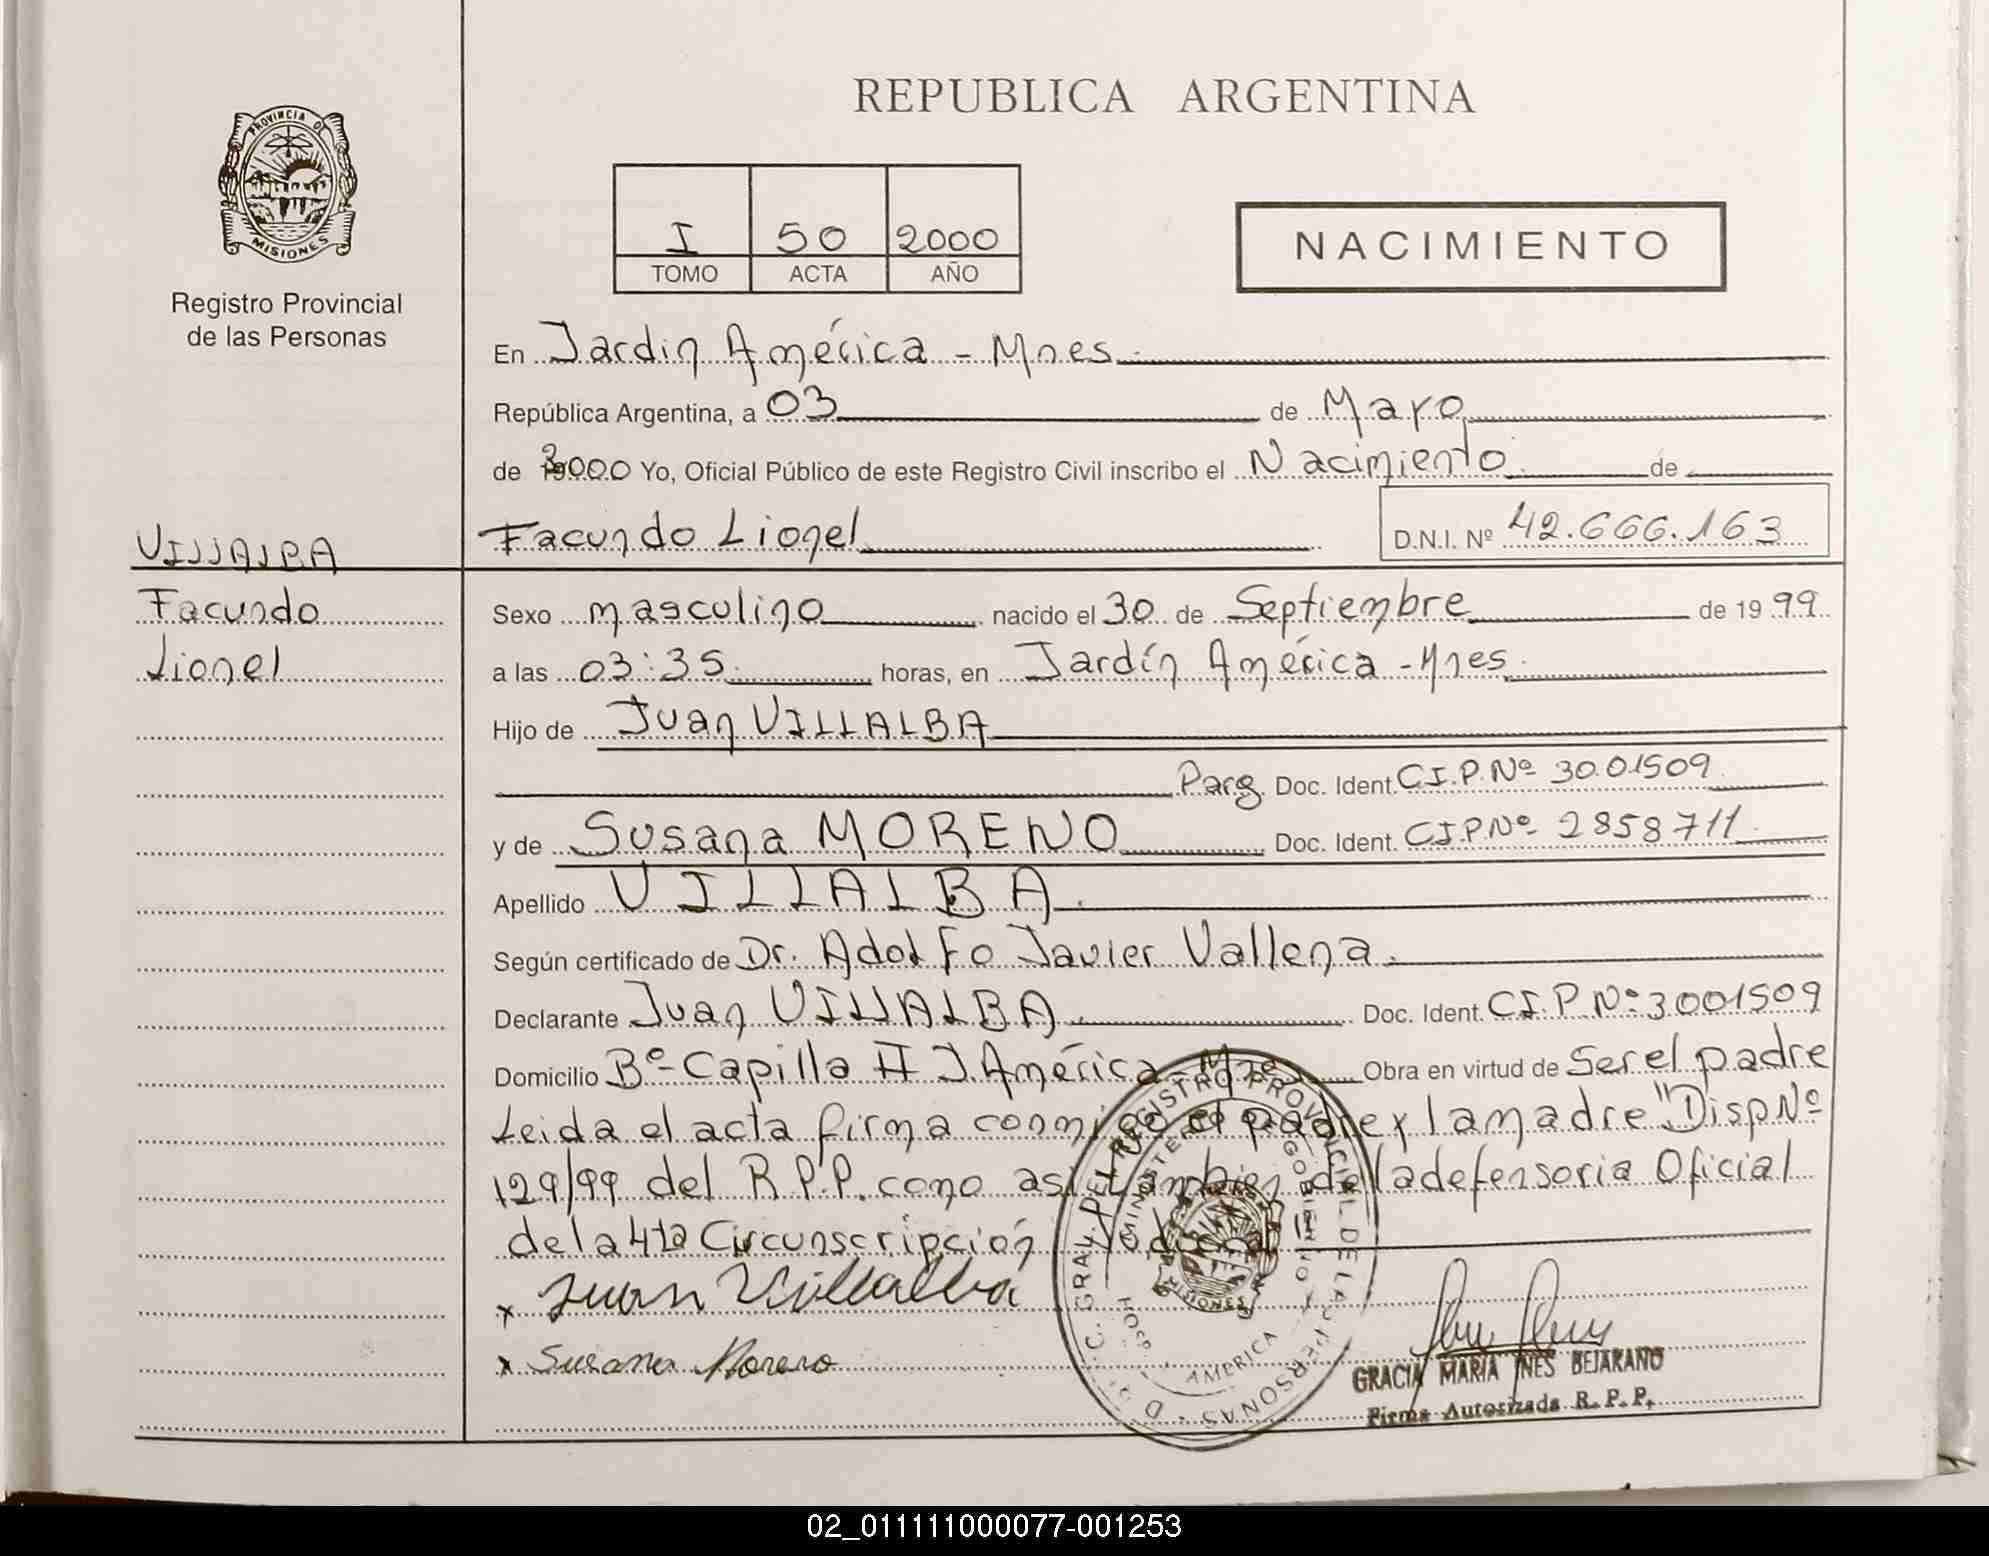 REPUBLICA ARGENTINA
PROVINCIA D
MISIONES
Registro Provincial
de las Personas
I 50 2000
TOMO ACTA AÑO
NACIMIENTO
En Jardin América - Mnes.
República Argentina, a 03 de Mayo
de 2000 Yo, Oficial Público de este Registro Civil inscribo el Nacimiento de
VILLALBA
Facundo Lionel D.N.I. Nº 42.666.163
Facundo
Sexo masculino nacido el 30 de Septiembre de 1999
Lionel
a las 03:35 horas, en Jardín América - Mnes.
Hijo de Juan VILLALBA
Parg. Doc. Ident. C.I.P.Nº 3001509
y de Susana MORENO Doc. Ident. C.I.P.Nº 2858711
Apellido VILLALBA.
Según certificado de Dr. Adolfo Javier Vallena.
Declarante Juan VILLALBA. Doc. Ident. C.I.P Nº 3001509
Domicilio Bº- Capilla II J. América - Mnes Obra en virtud de Ser el padre
Leida el acta firma conmigo el padre y la madre "Disp Nº
129/99 del R.P.P. como asi tambien de la defensoria Oficial
de la 4ta Circunscripción Judicial
x Juan Villalba
x Susana Moreno
GRACIA MARIA INES BEJARANO
Firma Autorizada R. P. P.
REGISTRO PROVINCIAL DE LAS PERSONAS
AMERICA
MISIONES
02_011111000077-001253